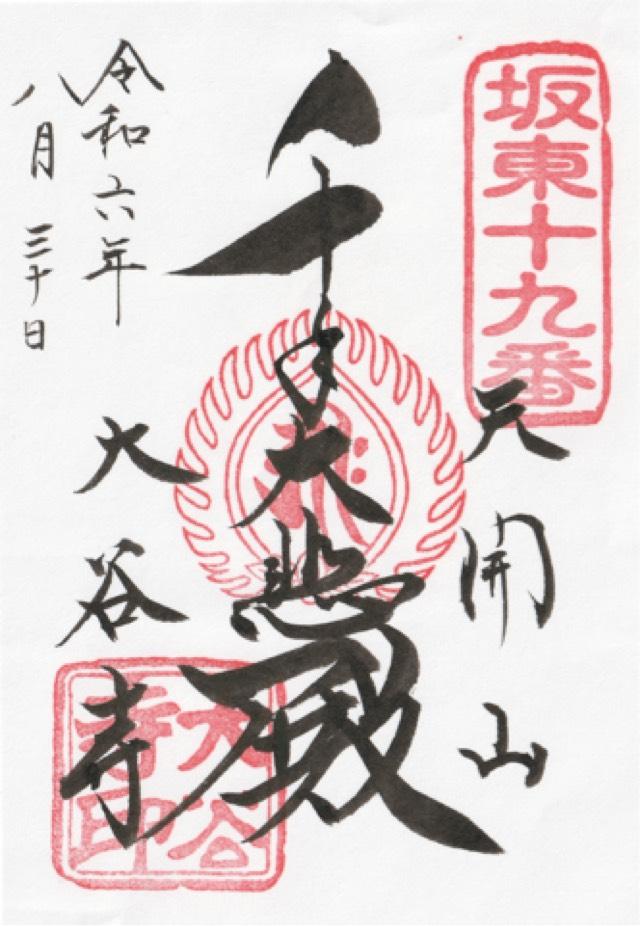 坂東十九番
天開山
千手大悲殿
大谷寺
大谷寺印
令和六年
八月三十日